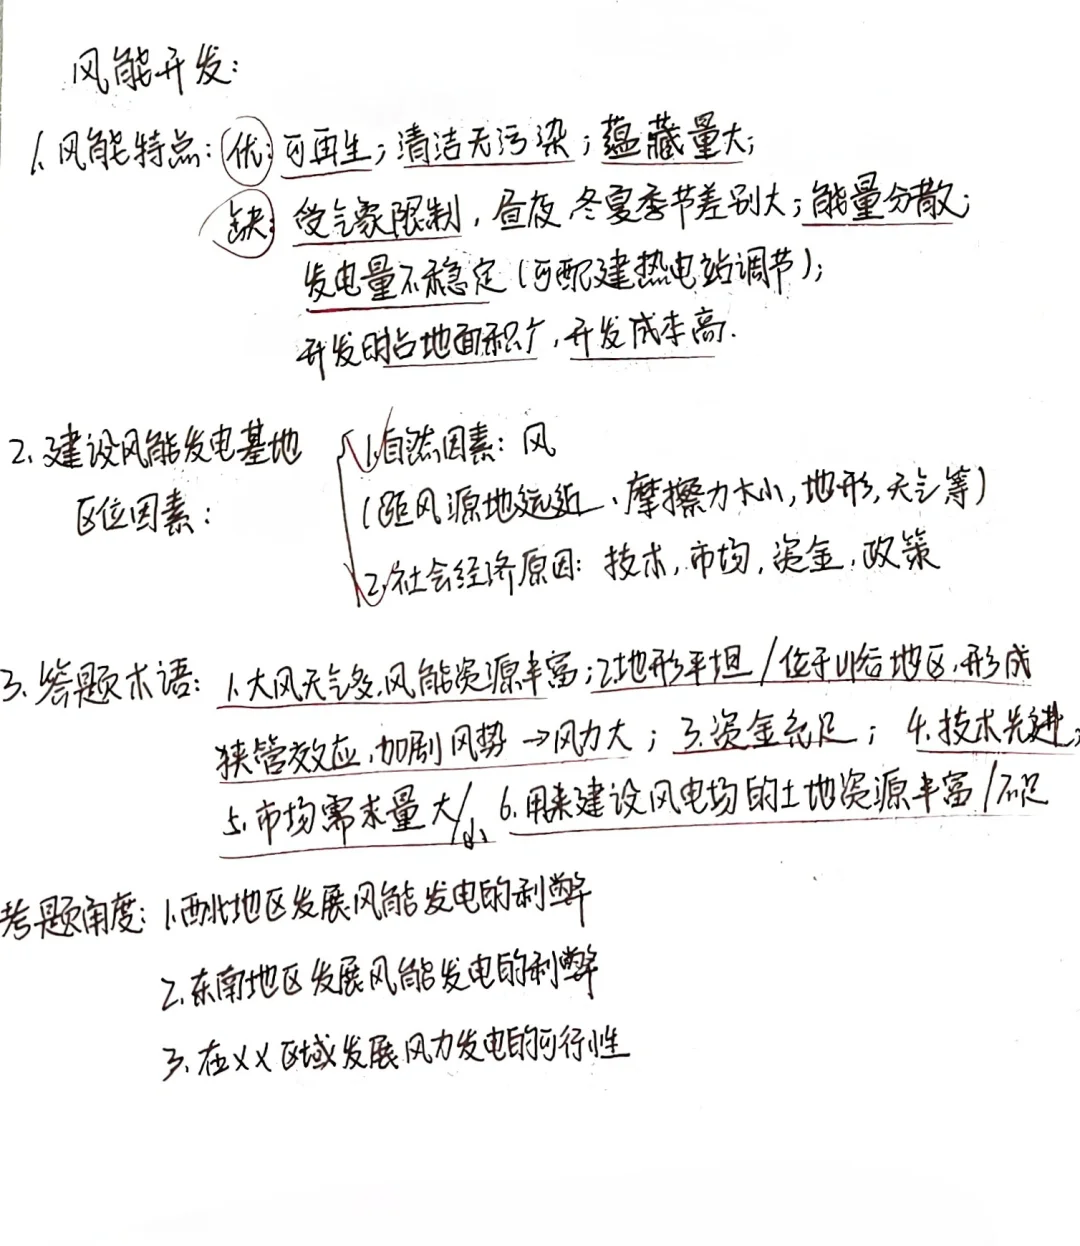 风能开发:
1.风能特点:优:可再生;清洁无污染;蕴藏量大;
缺:受气象限制,昼夜、冬夏季节差别大;能量分散;
发电量不稳定(可配建热电站调节);
开发时占地面积广,开发成本高.
2.建设风能发电基地 1.自然因素:风
区位因素: (距风源地远近、摩擦力大小,地形,天气等)
2.社会经济原因:技术,市场,资金,政策
3.答题术语:1.大风天气多,风能资源丰富;2.地形平坦/位于山谷地区,形成
狭管效应,加剧风势→风力大;3.资金充足;4.技术先进;
5.市场需求量大/小;6.用来建设风电场的土地资源丰富/不足
考题角度:1.西北地区发展风能发电的利弊
2.东南地区发展风能发电的利弊
3.在XX区域发展风力发电的可行性